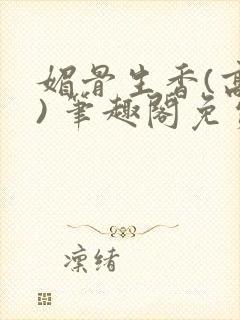 媚骨生香(高
) 笔趣阁免
凛绪